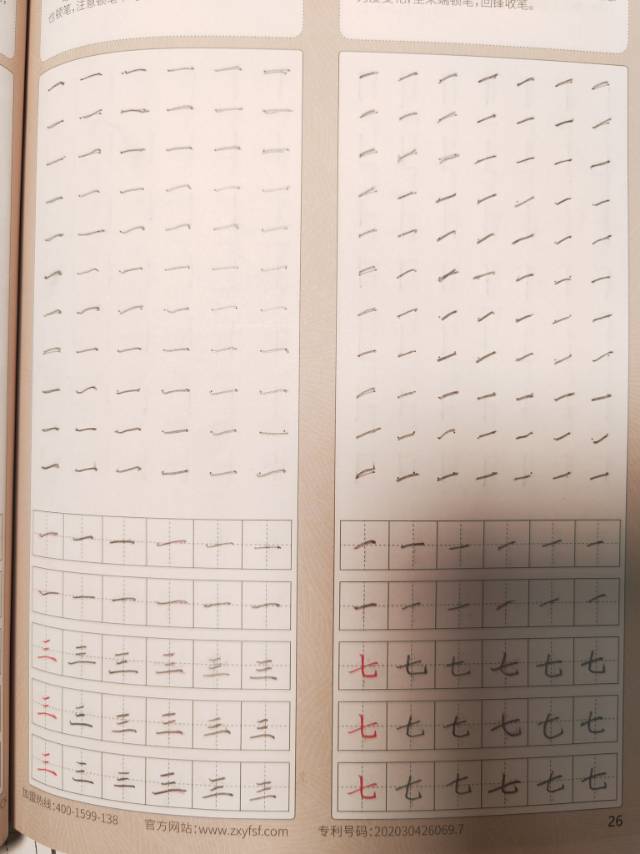 也顿笔,注意顿笔
一一一一一一
一一一一一一
三三三三三三
三三三三三三
三三三三三三
加盟热线:400-1599-138
官方网站:www.zxyfsf.com
至末端顿笔,回锋收笔。
一一一一一一
一一一一一一
七七七七七七
七七七七七七
七七七七七七
专利号码:202030426069.7
26